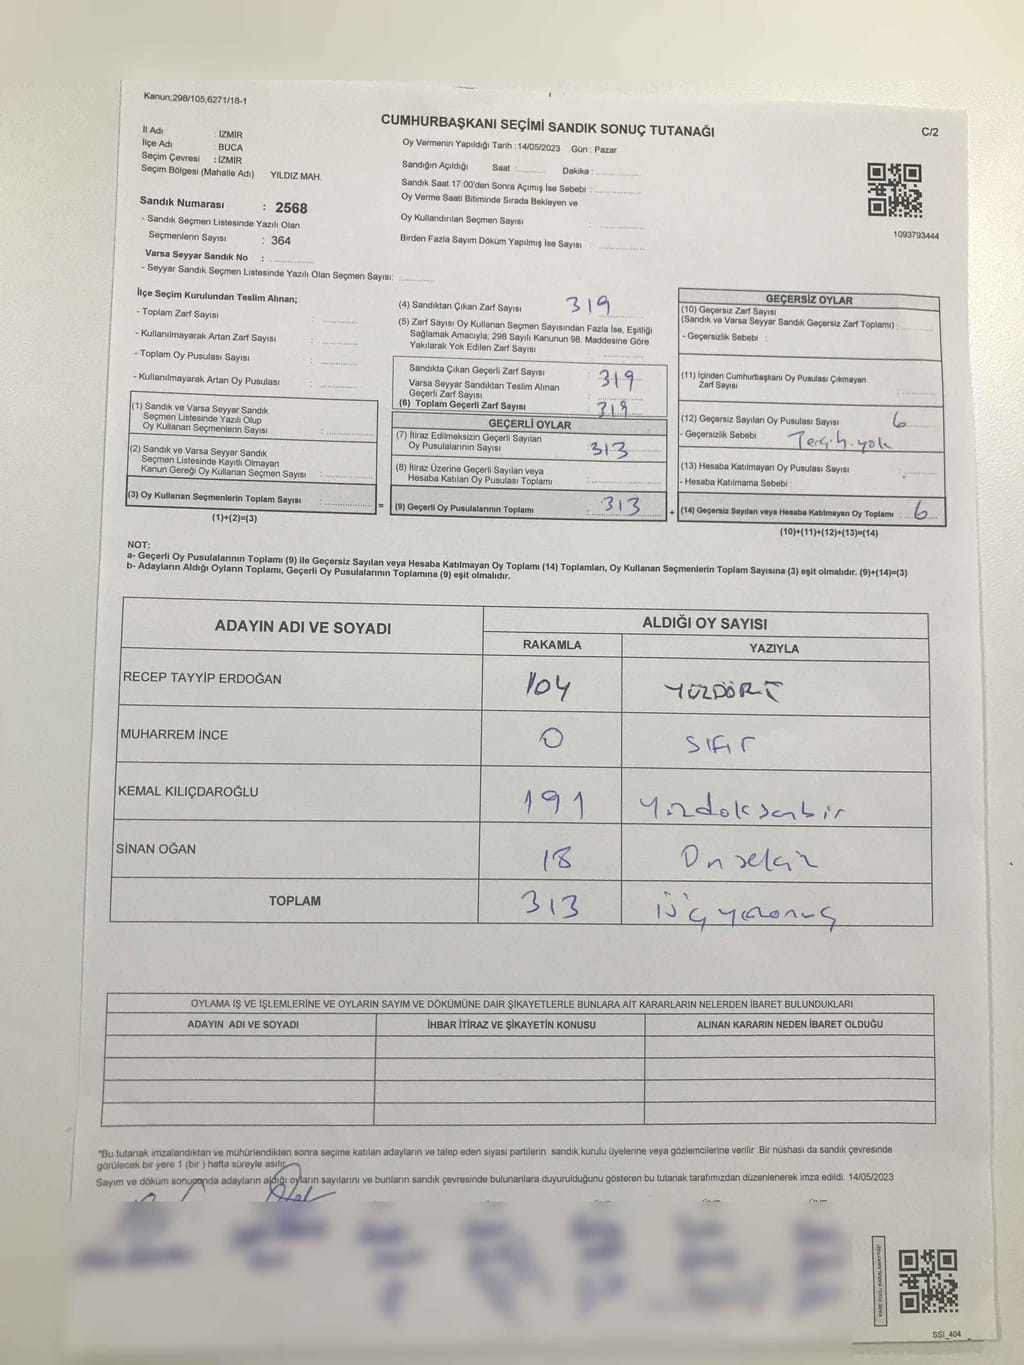 Kanun,298/105,6271/18-1
CUMHURBAŞKANI SEÇİMİ SANDIK SONUÇ TUTANAĞI
C/2
İl Adı : İZMİR
İlçe Adı : BUCA
Seçim Çevresi : İZMİR
Seçim Bölgesi (Mahalle Adı) YILDIZ MAH.
Sandık Numarası : 2568
- Sandık Seçmen Listesinde Yazılı Olan
Seçmenlerin Sayısı : 364
Varsa Seyyar Sandık No :
- Seyyar Sandık Seçmen Listesinde Yazılı Olan Seçmen Sayısı:
Oy Vermenin Yapıldığı Tarih :14/05/2023 Gün : Pazar
Sandığın Açıldığı Saat Dakika :
Sandık Saat 17:00'den Sonra Açımış İse Sebebi :
Oy Verme Saati Bitiminde Sırada Bekleyen ve
Oy Kullandırılan Seçmen Sayısı :
Birden Fazla Sayım Döküm Yapılmış İse Sayısı :
1093793444
İlçe Seçim Kurulundan Teslim Alınan;
- Toplam Zarf Sayısı :
- Kullanılmayarak Artan Zarf Sayısı :
- Toplam Oy Pusulası Sayısı :
- Kullanılmayarak Artan Oy Pusulası :
(1) Sandık ve Varsa Seyyar Sandık
Seçmen Listesinde Yazılı Olup
Oy Kullanan Seçmenlerin Sayısı :
(2) Sandık ve Varsa Seyyar Sandık
Seçmen Listesinde Kayıtlı Olmayan
Kanun Gereği Oy Kullanan Seçmen Sayısı :
(3) Oy Kullanan Seçmenlerin Toplam Sayısı :
(1)+(2)=(3)
(4) Sandıktan Çıkan Zarf Sayısı 319
(5) Zarf Sayısı Oy Kullanan Seçmen Sayısından Fazla İse, Eşitliği
Sağlamak Amacıyla, 298 Sayılı Kanunun 98. Maddesine Göre
Yakılarak Yok Edilen Zarf Sayısı
Sandıkta Çıkan Geçerli Zarf Sayısı : 319
Varsa Seyyar Sandıktan Teslim Alınan
Geçerli Zarf Sayısı
(6) Toplam Geçerli Zarf Sayısı 319
GEÇERLİ OYLAR
(7) İtiraz Edilmeksizin Geçerli Sayılan
Oy Pusulalarının Sayısı : 313
(8) İtiraz Üzerine Geçerli Sayılan veya
Hesaba Katılan Oy Pusulası Toplamı :
= (9) Geçerli Oy Pusulalarının Toplamı : 313
GEÇERSİZ OYLAR
(10) Geçersiz Zarf Sayısı
(Sandık ve Varsa Seyyar Sandık Geçersiz Zarf Toplamı) :
- Geçersizlik Sebebi :
(11) İçinden Cumhurbaşkanı Oy Pusulası Çıkmayan
Zarf Sayısı
(12) Geçersiz Sayılan Oy Pusulası Sayısı 6
- Geçersizlik Sebebi : Tercih yok
(13) Hesaba Katılmayan Oy Pusulası Sayısı :
- Hesaba Katılmama Sebebi :
+ (14) Geçersiz Sayılan veya Hesaba Katılmayan Oy Toplamı : 6
(10)+(11)+(12)+(13)=(14)
NOT:
a- Geçerli Oy Pusulalarının Toplamı (9) ile Geçersiz Sayılan veya Hesaba Katılmayan Oy Toplamı (14) Toplamları, Oy Kullanan Seçmenlerin Toplam Sayısına (3) eşit olmalıdır. (9)+(14)=(3)
b- Adayların Aldığı Oyların Toplamı, Geçerli Oy Pusulalarının Toplamına (9) eşit olmalıdır.
ADAYIN ADI VE SOYADI ALDIĞI OY SAYISI
RAKAMLA YAZIYLA
RECEP TAYYİP ERDOĞAN 104 YÜZDÖRT
MUHARREM İNCE 0 sıfır
KEMAL KILIÇDAROĞLU 191 Yüzdoksanbir
SİNAN OĞAN 18 On sekiz
TOPLAM 313 üçyüzonüç
OYLAMA İŞ VE İŞLEMLERİNE VE OYLARIN SAYIM VE DÖKÜMÜNE DAİR ŞİKAYETLERLE BUNLARA AİT KARARLARIN NELERDEN İBARET BULUNDUKLARI
ADAYIN ADI VE SOYADI İHBAR İTİRAZ VE ŞİKAYETİN KONUSU ALINAN KARARIN NEDEN İBARET OLDUĞU
*Bu tutanak imzalandıktan ve mühürlendikten sonra seçime katılan adayların ve talep eden siyasi partilerin sandık kurulu üyelerine veya gözlemcilerine verilir .Bir nüshası da sandık çevresinde
görülecek bir yere 1 (bir ) hafta süreyle asılır.
Sayım ve döküm sonucunda adayların aldığı oyların sayılarını ve bunların sandık çevresinde bulunanlara duyurulduğunu gösteren bu tutanak tarafımızdan düzenlenerek imza edildi. 14/05/2023
KARE KODU KARALAMAYINIZ!
SSI_404